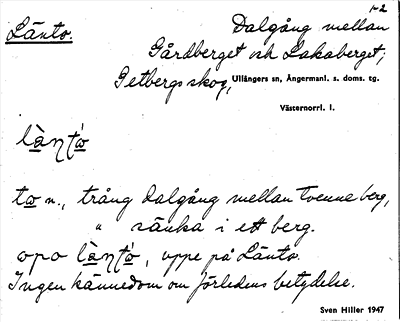 1-2
Länto. Dalgång mellan
Gårdberget och Lakaberget,
Getbergsskog, Ullångers sn, Ångermanl. s. doms. tg.
Västernorrl. l.
làntó
to n., trång dalgång mellan tvenne berg,
" sänka i ett berg.
opo làntó, uppe på Länto.
Ingen kännedom om förledens betydelse.
Sven Hiller 1947